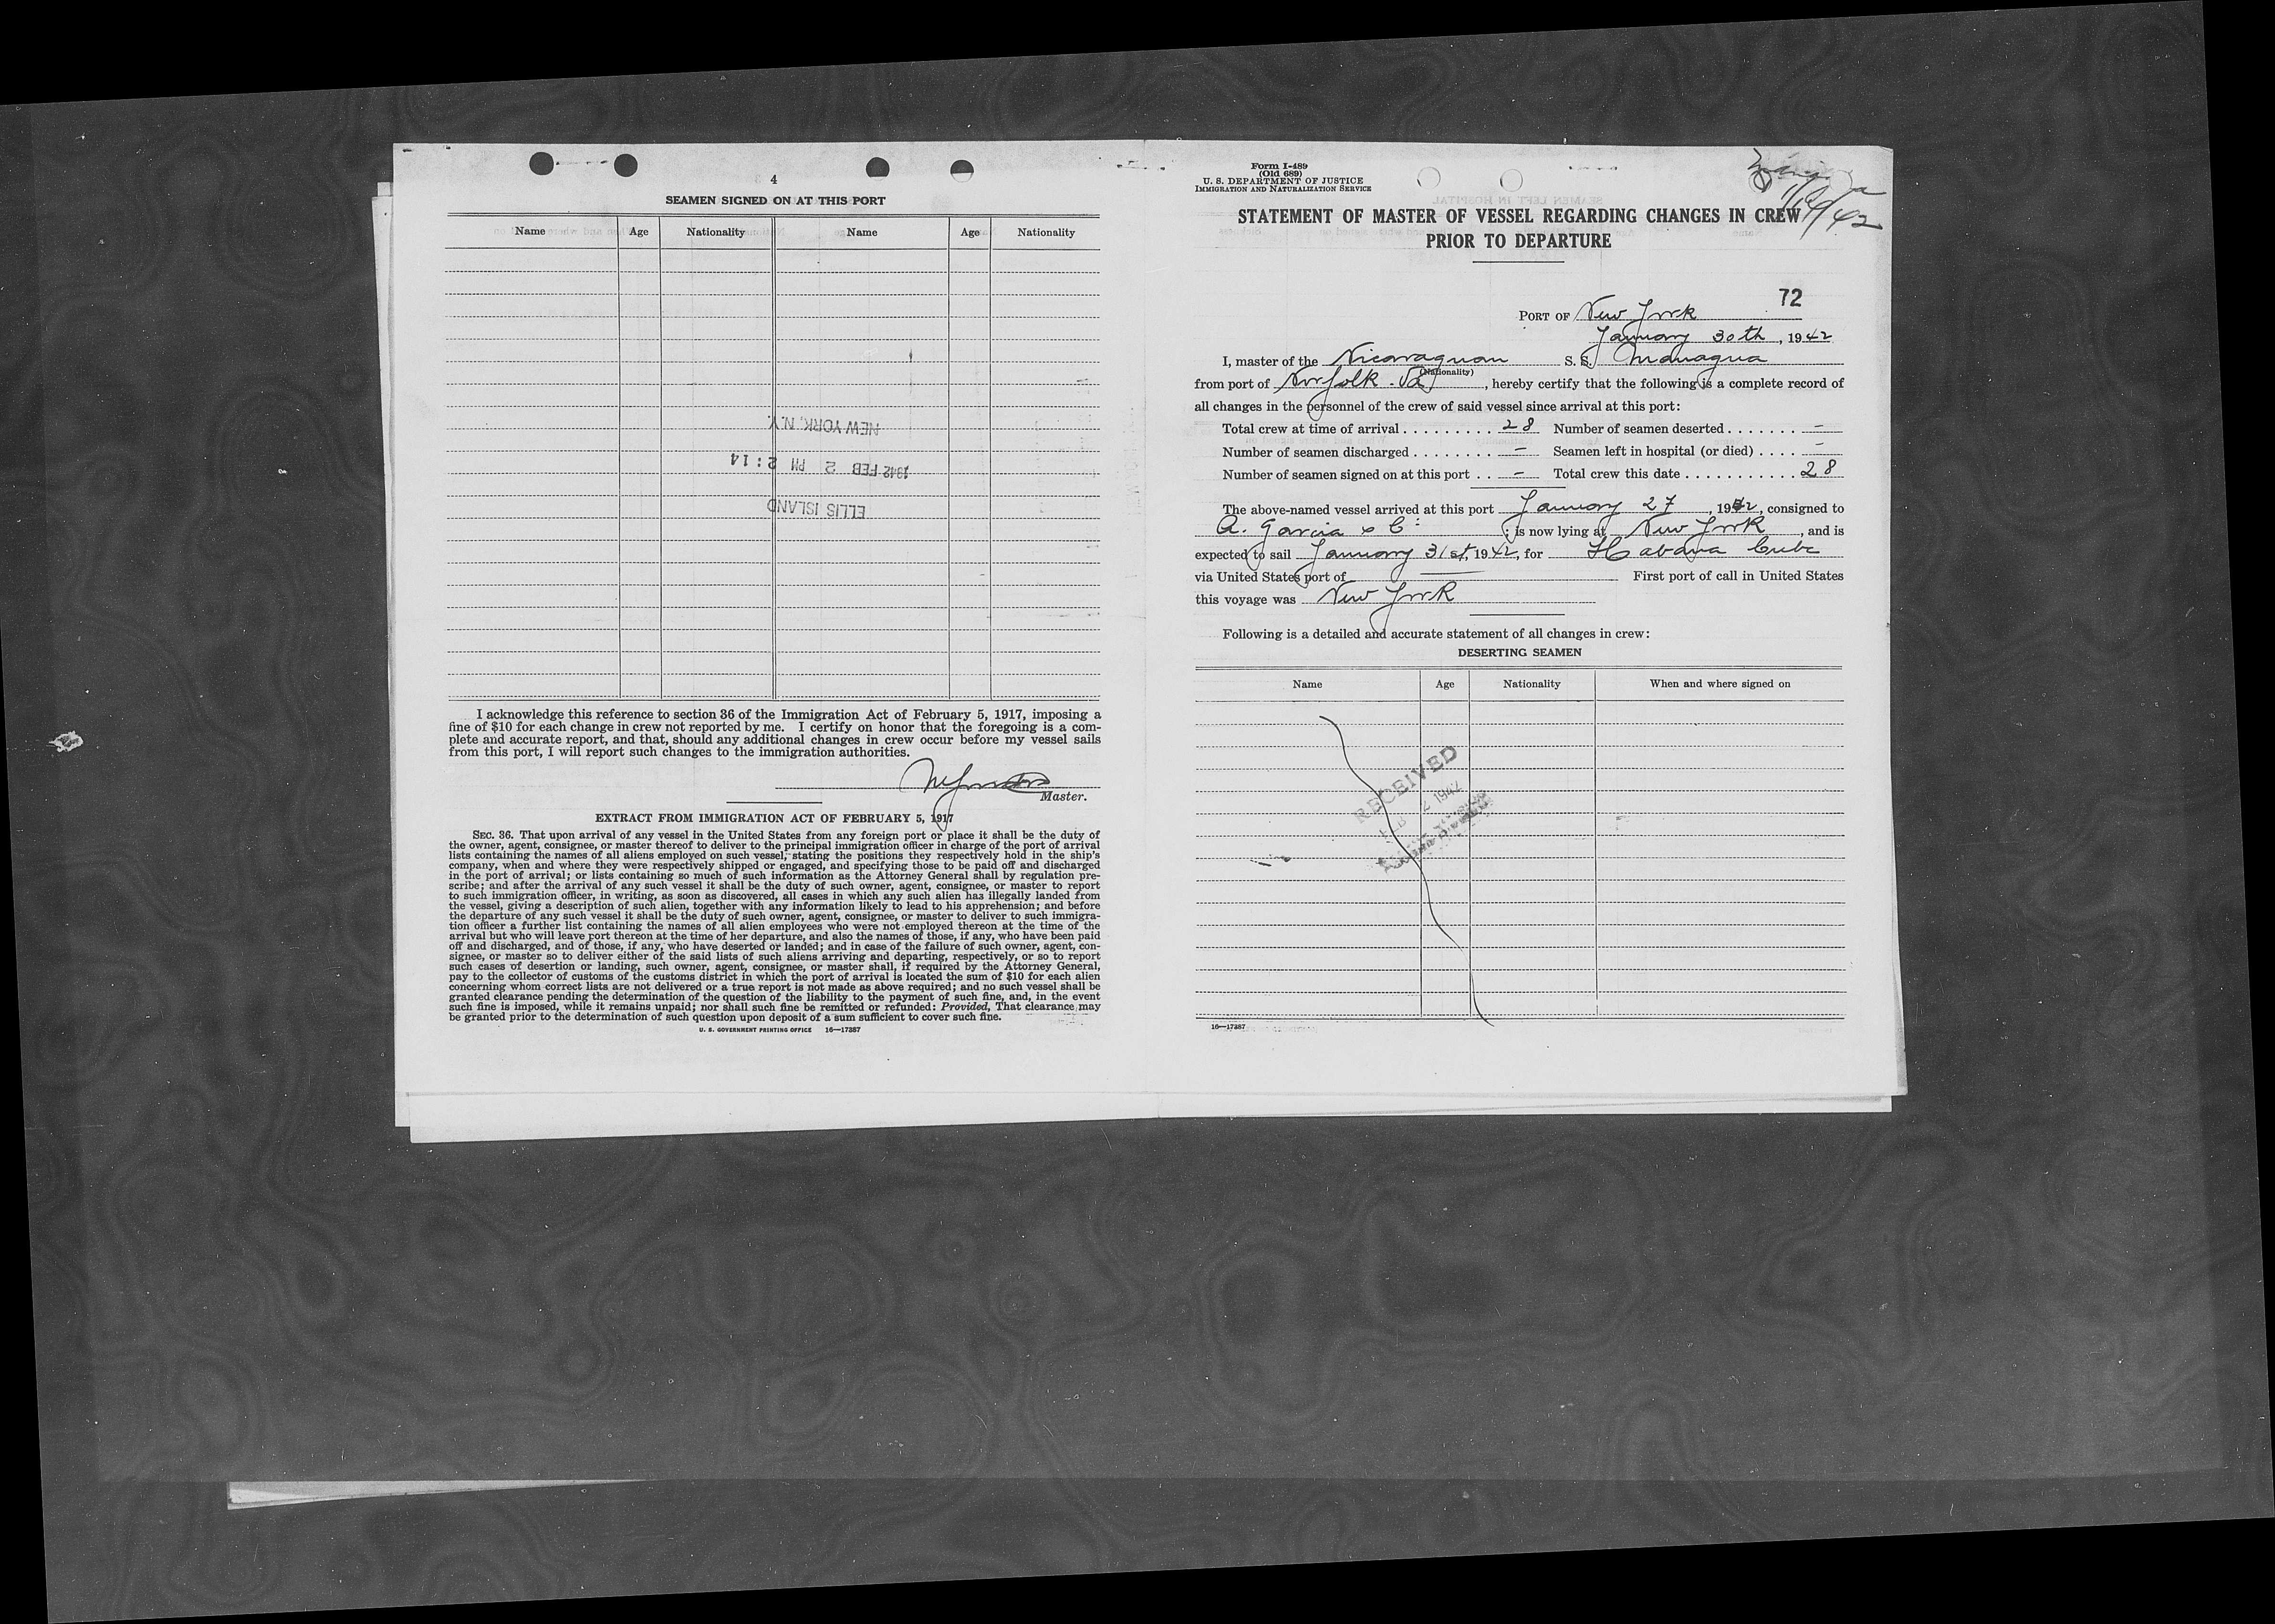 4
SEAMEN SIGNED ON AT THIS PORT
Name Age Nationality Name Age Nationality
NEW YORK, N.Y.
1942 FEB 2 PM 2:14
ELLIS ISLAND
I acknowledge this reference to section 36 of the Immigration Act of February 5, 1917, imposing a
fine of $10 for each change in crew not reported by me. I certify on honor that the foregoing is a com-
plete and accurate report, and that, should any additional changes in crew occur before my vessel sails
from this port, I will report such changes to the immigration authorities.
Master.
EXTRACT FROM IMMIGRATION ACT OF FEBRUARY 5, 1917
SEC. 36. That upon arrival of any vessel in the United States from any foreign port or place it shall be the duty of
the owner, agent, consignee, or master thereof to deliver to the principal immigration officer in charge of the port of arrival
lists containing the names of all aliens employed on such vessel, stating the positions they respectively hold in the ship's
company, when and where they were respectively shipped or engaged, and specifying those to be paid off and discharged
in the port of arrival; or lists containing so much of such information as the Attorney General shall by regulation pre-
scribe; and after the arrival of any such vessel it shall be the duty of such owner, agent, consignee, or master to report
to such immigration officer, in writing, as soon as discovered, all cases in which any such alien has illegally landed from
the vessel, giving a description of such alien, together with any information likely to lead to his apprehension; and before
the departure of any such vessel it shall be the duty of such owner, agent, consignee, or master to deliver to such immigra-
tion officer a further list containing the names of all alien employees who were not employed thereon at the time of the
arrival but who will leave port thereon at the time of her departure, and also the names of those, if any, who have been paid
off and discharged, and of those, if any, who have deserted or landed; and in case of the failure of such owner, agent, con-
signee, or master so to deliver either of the said lists of such aliens arriving and departing, respectively, or so to report
such cases of desertion or landing, such owner, agent, consignee, or master shall, if required by the Attorney General,
pay to the collector of customs of the customs district in which the port of arrival is located the sum of $10 for each alien
concerning whom correct lists are not delivered or a true report is not made as above required; and no such vessel shall be
granted clearance pending the determination of the question of the liability to the payment of such fine, and, in the event
such fine is imposed, while it remains unpaid; nor shall such fine be remitted or refunded: Provided, That clearance may
be granted prior to the determination of such question upon deposit of a sum sufficient to cover such fine.
U. S. GOVERNMENT PRINTING OFFICE 16—17387
Form I-489
(Old 689)
U. S. DEPARTMENT OF JUSTICE
IMMIGRATION AND NATURALIZATION SERVICE
STATEMENT OF MASTER OF VESSEL REGARDING CHANGES IN CREW
PRIOR TO DEPARTURE
72
PORT OF New York
January 30th, 1942
I, master of the Nicaraguan S. S. Managua
(Nationality)
from port of Norfolk - Va, hereby certify that the following is a complete record of
all changes in the personnel of the crew of said vessel since arrival at this port:
Total crew at time of arrival . . . . . . . . . 28 Number of seamen deserted . . . . . . . —
Number of seamen discharged . . . . . . . . — Seamen left in hospital (or died) . . . . —
Number of seamen signed on at this port . . — Total crew this date . . . . . . . . . . . 28
The above-named vessel arrived at this port January 27, 1942, consigned to
A. Garcia & C: ; is now lying at New York, and is
expected to sail January 31st, 1942, for Habana Cuba
via United States port of — First port of call in United States
this voyage was New York
Following is a detailed and accurate statement of all changes in crew:
DESERTING SEAMEN
Name Age Nationality When and where signed on
RECEIVED
FEB 2 1942
16—17387